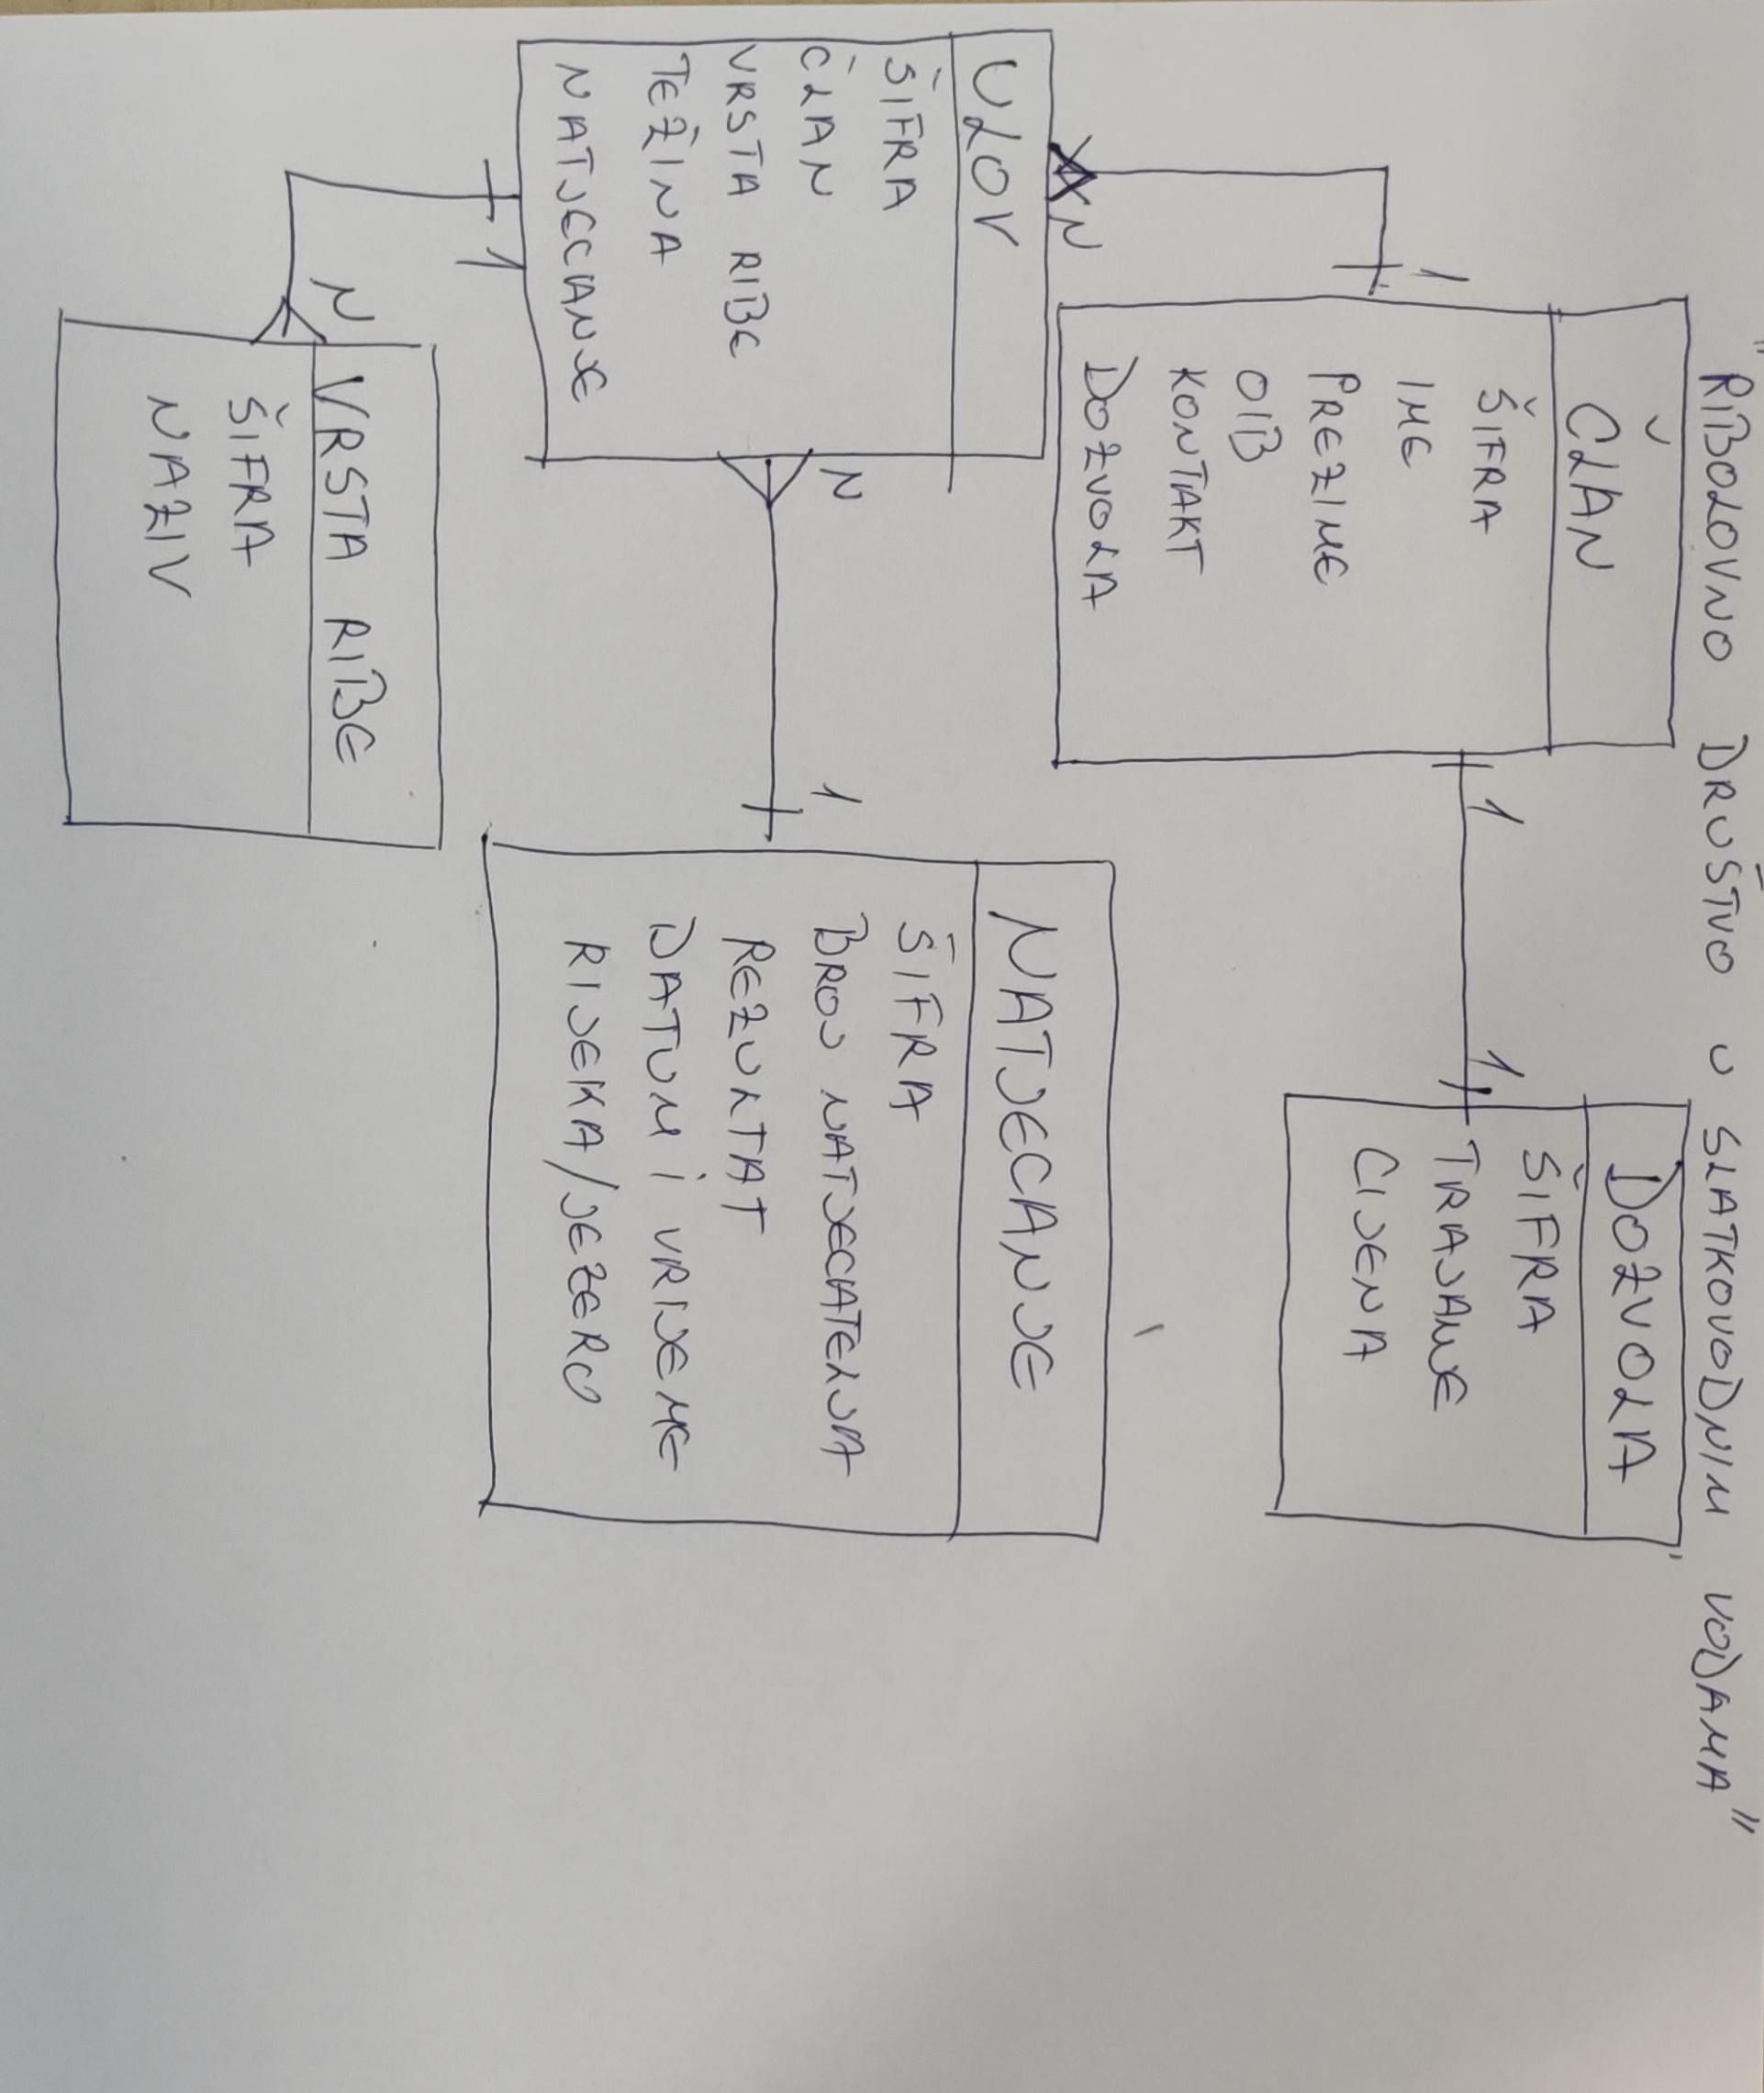 "RIBOLOVNO DRUŠTVO U SLATKOVODNIM VODAMA"
ČLAN
ŠIFRA
IME
PREZIME
OIB
KONTAKT
DOZVOLA
1 1
DOZVOLA
ŠIFRA
TRAJANJE
CIJENA
1
N
ULOV
ŠIFRA
ČLAN
VRSTA RIBE
TEŽINA
NATJECANJE
N 1
NATJECANJE
ŠIFRA
BROJ NATJECATELJA
REZULTAT
DATUM I VRIJEME
RIJEKA/JEZERO
1
N
VRSTA RIBE
ŠIFRA
NAZIV